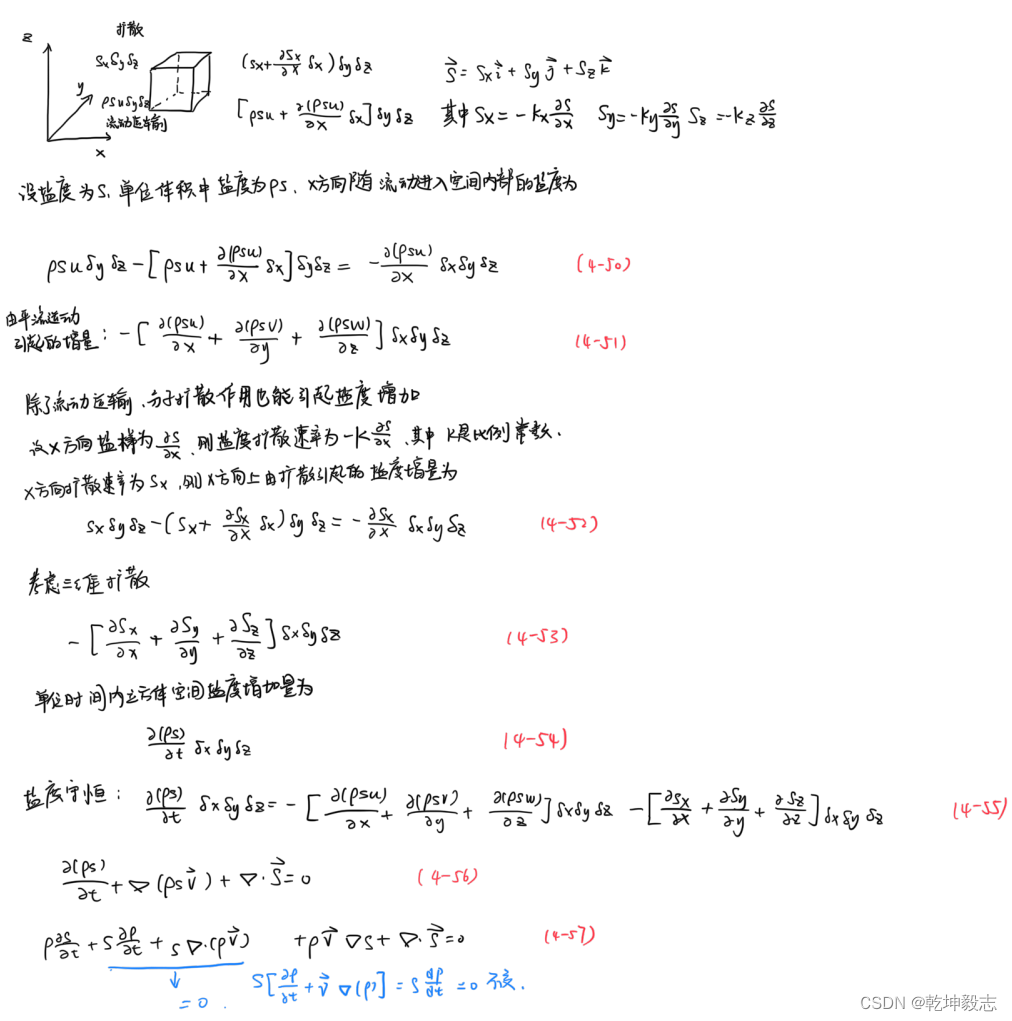 z
扩散
Sxδyδz
(Sx+∂Sx/∂x δx)δyδz
S⃗=Sx i⃗+Sy j⃗+Sz k⃗
y
ρsuδyδz
流动运输
[ρsu+∂(ρsu)/∂x δx]δyδz
其中 Sx=-Kx ∂s/∂x Sy=-Ky ∂s/∂y Sz=-Kz ∂s/∂z
x
设盐度为S,单位体积中盐度为ρs,x方向随流动进入空间内部的盐度为
ρsuδyδz-[ρsu+∂(ρsu)/∂x δx]δyδz= -∂(ρsu)/∂x δxδyδz (4-50)
由平流运动
引起的增量: -[∂(ρsu)/∂x+∂(ρsv)/∂y+∂(ρsw)/∂z]δxδyδz (4-51)
除了流动运输,分子扩散作用也能引起盐度增加
设x方向盐梯为∂s/∂x,则盐度扩散速率为-K∂s/∂x,其中K是比例常数.
x方向扩散速率为Sx,则x方向上由扩散引起的盐度增量为
Sxδyδz-(Sx+∂Sx/∂x δx)δyδz=-∂Sx/∂x δxδyδz (4-52)
考虑三维扩散
-[∂Sx/∂x+∂Sy/∂y+∂Sz/∂z]δxδyδz (4-53)
单位时间内立方体空间盐度增加量为
∂(ρs)/∂t δxδyδz (4-54)
盐度守恒: ∂(ρs)/∂t δxδyδz=-[∂(ρsu)/∂x+∂(ρsv)/∂y+∂(ρsw)/∂z]δxδyδz -[∂Sx/∂x+∂Sy/∂y+∂Sz/∂z]δxδyδz (4-55)
∂(ρs)/∂t+∇(ρsv⃗)+∇·S⃗=0 (4-56)
ρ∂s/∂t+s∂ρ/∂t+s∇·(ρv⃗) +ρv⃗∇s+∇·S⃗=0 (4-57)
=0. S[∂ρ/∂t+v⃗∇(ρ)]=S dρ/dt=0
CSDN @乾坤毅志